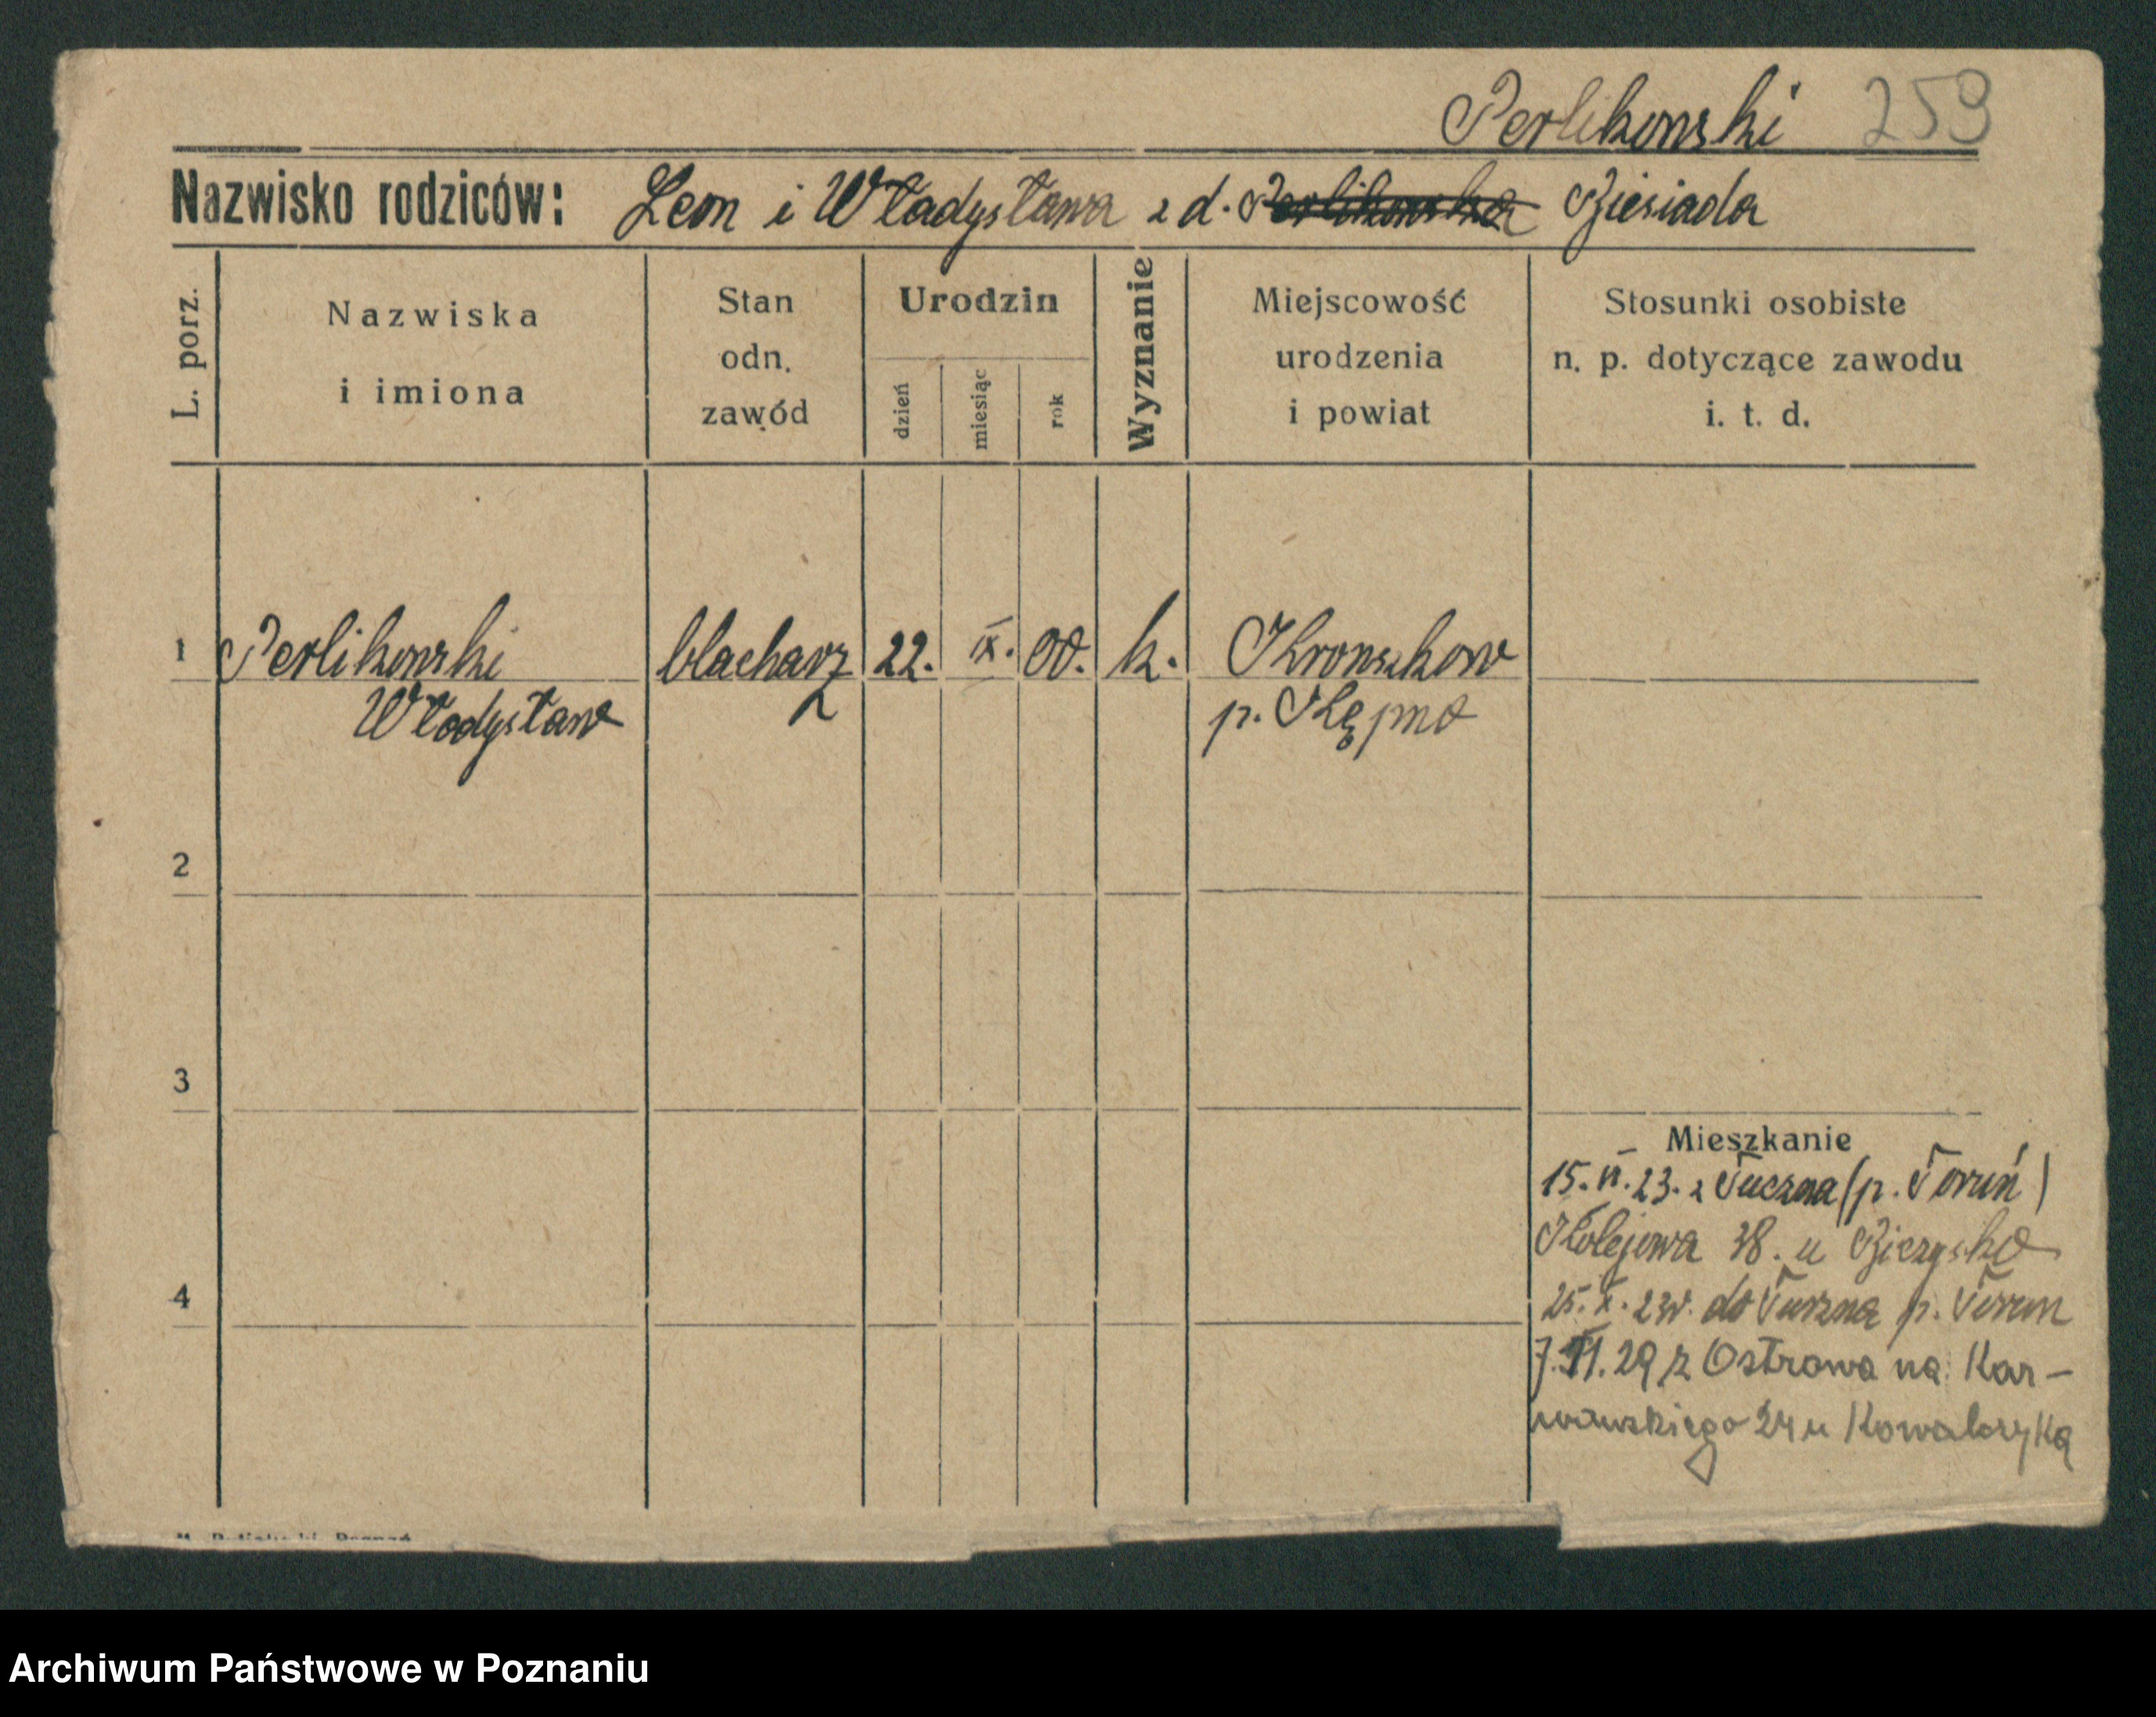 Perlikowski 259
Nazwisko rodziców: Leon i Władysława z d. Perlikowska Biesiada
L. porz.
Nazwiska
i imiona
Stan
odn.
zawód
Urodzin
dzień
miesiąc
rok
Wyznanie
Miejscowość
urodzenia
i powiat
Stosunki osobiste
n. p. dotyczące zawodu
i. t. d.
1 Perlikowski blacharz 22. IX. 00. k. Kronszkow
Władysław p. Kępno
2
3
4
Mieszkanie
15. VI. 23. z Tuczna (p. Toruń)
Kolejowa 38. u Biczysko
25. X. 23r. do Turzna p. Torun
7. 11. 29 z Ostrowa na Kar-
wowskiego 24 u Kowalczyka
Poznań
Archiwum Państwowe w Poznaniu